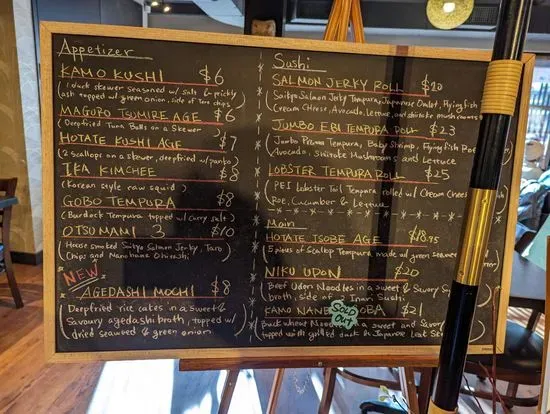 Appetizer
KAMO KUSHI $6
(1 duck skewer seasoned w/ salt & prickly
ash topped w/ green onion, side of Taro chips)
MAGURO TSUMIRE AGE $6
(Deepfried Tuna Balls on a Skewer)
HOTATE KUSHI AGE $7
(2 scallops on a skewer, deepfried w/ panko)
IKA KIMCHEE $8
(Korean style raw squid)
GOBO TEMPURA $8
(Burdock Tempura topped w/ curry salt)
OTSUMAMI 3 $10
(House smoked Saikyo Salmon Jerky, Taro
Chips and Nanohana Ohitashi)
NEW
AGEDASHI MOCHI $8
(Deepfried rice cakes in a sweet &
Savoury agedashi broth, topped w/
dried seaweed & green onion)
Sushi
SALMON JERKY ROLL $20
(Saikyo Salmon Jerky Tempura, Japanese Omlet, Flying fish
Cream Cheese, Avocado, Lettuce, and shiitake mushrooms)
JUMBO EBI TEMPURA ROLL $23
(Jumbo Prawn Tempura, Baby Shrimp, Flying fish Roe
Avocado, Shiitake Mushrooms and Lettuce
LOBSTER TEMPURA ROLL $25
(PEI Lobster Tail Tempura rolled w/ Cream Cheese
Roe, Cucumber & Lettuce
Main
HOTATE ISOBE AGE $18.95
(5 pieces of Scallop Tempura made w/ green seaweed
NIKU UDON $20
(Beef Udon Noodles in a sweet & Savory
broth, side of 2 Inari Sushi
KAMO NANB OBA $21
SOLD OUT
(Buckwheat Noodles a sweet and Savory
topped with grilled duck & Japanese Leek